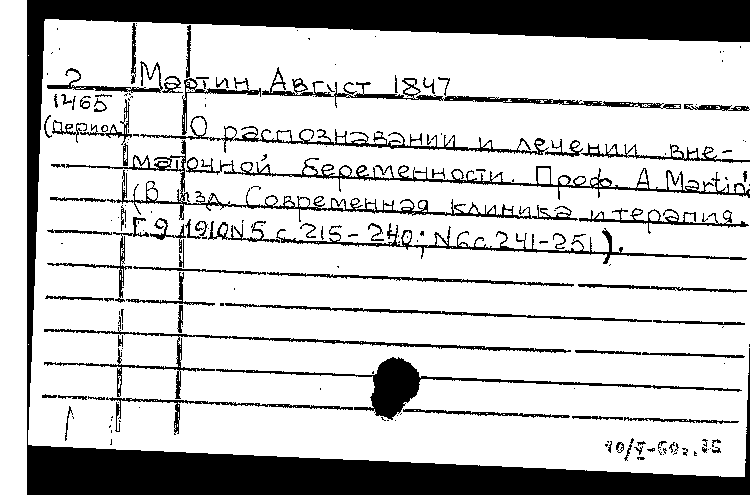 2 Мартин, Август 1847
1465
(период) О распознавании и лечении вне-
маточной беременности. Проф. A. Martin'а
(В изд. Современная клиника и терапия.
Г.9 1910 N5 с.215-240; N6 с.241-251).